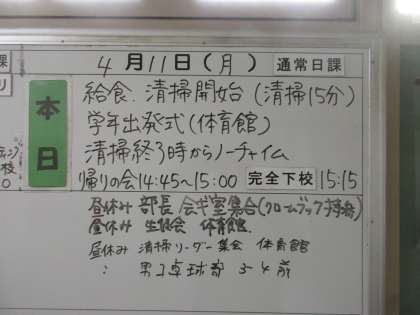 4月11日(月) 通常日課
本日
給食.清掃開始(清掃15分)
学年出発式(体育館)
清掃終了時からノーチャイム
帰りの会14:45~15:00 完全下校 15:15
昼休み 部長 会議室集合(クロームブック持参)
昼休み 生徒会 体育館
昼休み 清掃リーダー集会 体育館
: 男子卓球部 3-4前